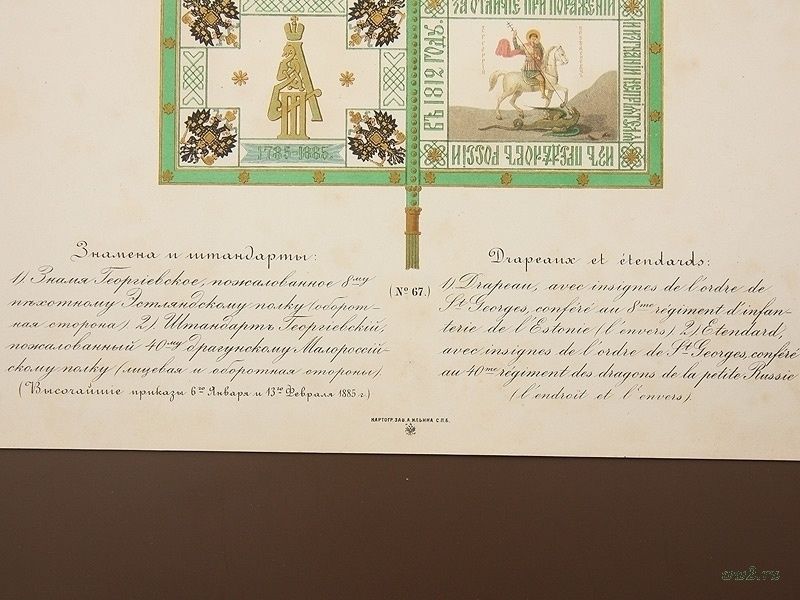 ЗА ОТЛИЧІЕ ПРИ ПОРАЖЕНІИ
И ИЗГНАНІИ НЕПРІЯТЕЛЯ
ИЗЪ ПРЕДѢЛОВЪ РОССІИ
ВЪ 1812 ГОДУ.
1785-1885.
Знамена и штандарты:
1) Знамя Георгіевское, пожалованное 8му
пѣхотному Эстляндскому полку (оборот-
ная сторона) 2) Штандартъ Георгіевскій,
пожалованный 40му драгунскому Малороссій-
скому полку (лицевая и оборотная стороны)
(Высочайшіе приказы 6го Января и 13го Февраля 1885 г.)
(№ 67.)
Drapeaux et étendards:
1) Drapeau, avec insignes de l'ordre de
St Georges, conféré au 8me régiment d'infan-
terie de l'Estonie (l'envers) 2) Etendard,
avec insignes de l'ordre de St Georges, conféré
au 40me régiment des dragons de la petite Russie
(l'endroit et l'envers).
КАРТОГР. ЗАВ. А. ИЛЬИНА С.П.Б.
sw2.ru